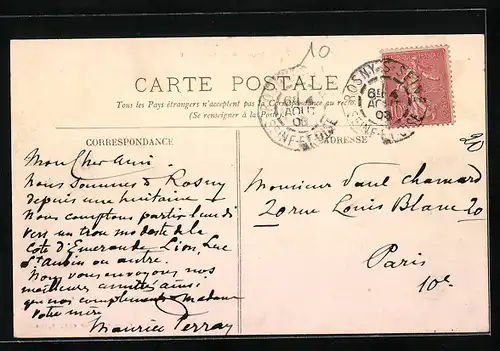 10
CARTE POSTALE
Tous les Pays étrangers n'acceptent pas la Correspondance au recto.
(Se renseigner à la Poste)
ROSNY-S-SEINE
6E 4
AOUT
03
SEINE-ET-OISE
ROSNY-S-SEINE
6E 4
AOUT
03
SEINE-ET-OISE
CORRESPONDANCE
ADRESSE
Mon Cher ami.
Nous sommes à Rosny
depuis une huitaine.
Nous comptons partir lundi
vers un trou modeste de la
Côte d'Emeraude, Lion, Luc
St Aubin ou autre.
Nous vous envoyons nos
meilleures amitiés ainsi
que nos compliments à madame
votre mère
Maurice Perray
20
Monsieur Paul Chamard
20 rue Louis Blanc 20
Paris
10e